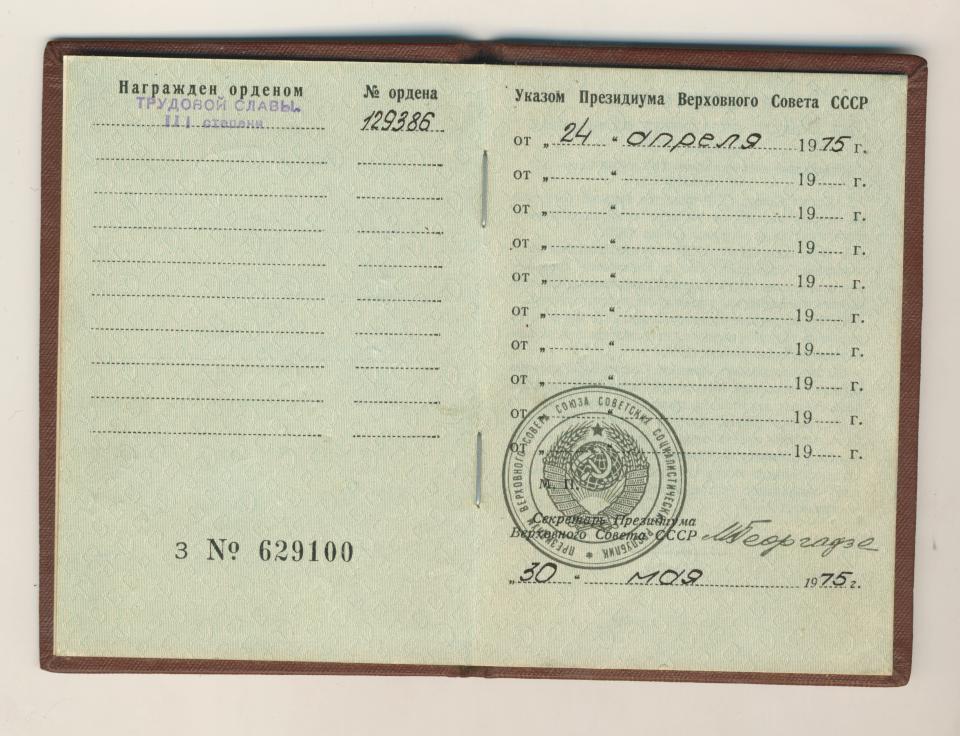 Награжден орденом
ТРУДОВОЙ СЛАВЫ
III степени
№ ордена
129386
З № 629100
Указом Президиума Верховного Совета СССР
от „ 24 “ апреля 1975 г.
от „ “ 19 г.
от „ “ 19 г.
от „ “ 19 г.
от „ “ 19 г.
от „ “ 19 г.
от „ “ 19 г.
от „ “ 19 г.
от „ “ 19 г.
от „ “ 19 г.
М. П.
ПРЕЗИДИУМ ВЕРХОВНОГО СОВЕТА СОЮЗА СОВЕТСКИХ СОЦИАЛИСТИЧЕСКИХ РЕСПУБЛИК
Секретарь Президиума
Верховного Совета СССР МГеоргадзе
„ 30 “ мая 1975 г.